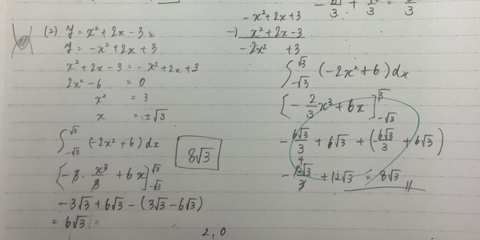 (2) y = x² + 2x - 3
y = -x² + 2x + 3
x² + 2x - 3 = -x² + 2x + 3
2x² - 6 = 0
x² = 3
x = ±√3
∫_{-√3}^{√3} (-2x² + 6) dx
6x]_{-√3}^{√3}
-3√3 + 6√3 - (3√3 - 6√3)
= 6√3
8√3
-x² + 2x + 3
-) x² + 2x - 3
-2x² + 3
∫_{-√3}^{√3} (-2x² + 6) dx
[-2/3 x³ + 6x]_{-√3}^{√3}
-6√3/3 + 6√3 + (-6√3/3 + 6√3)
+ 12√3 = 8√3
2,0